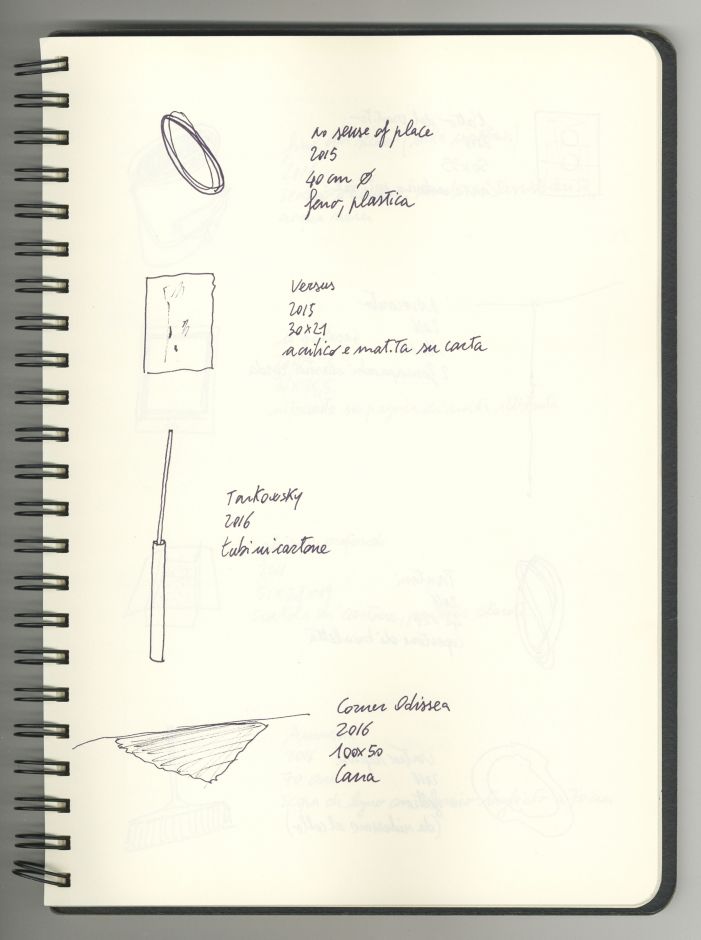 no sense of place
2015
40 cm Ø
ferro, plastica
Versus
2015
30x21
acrilico e matita su carta
Tarkovsky
2016
tubi in cartone
Corner Odissea
2016
100x50